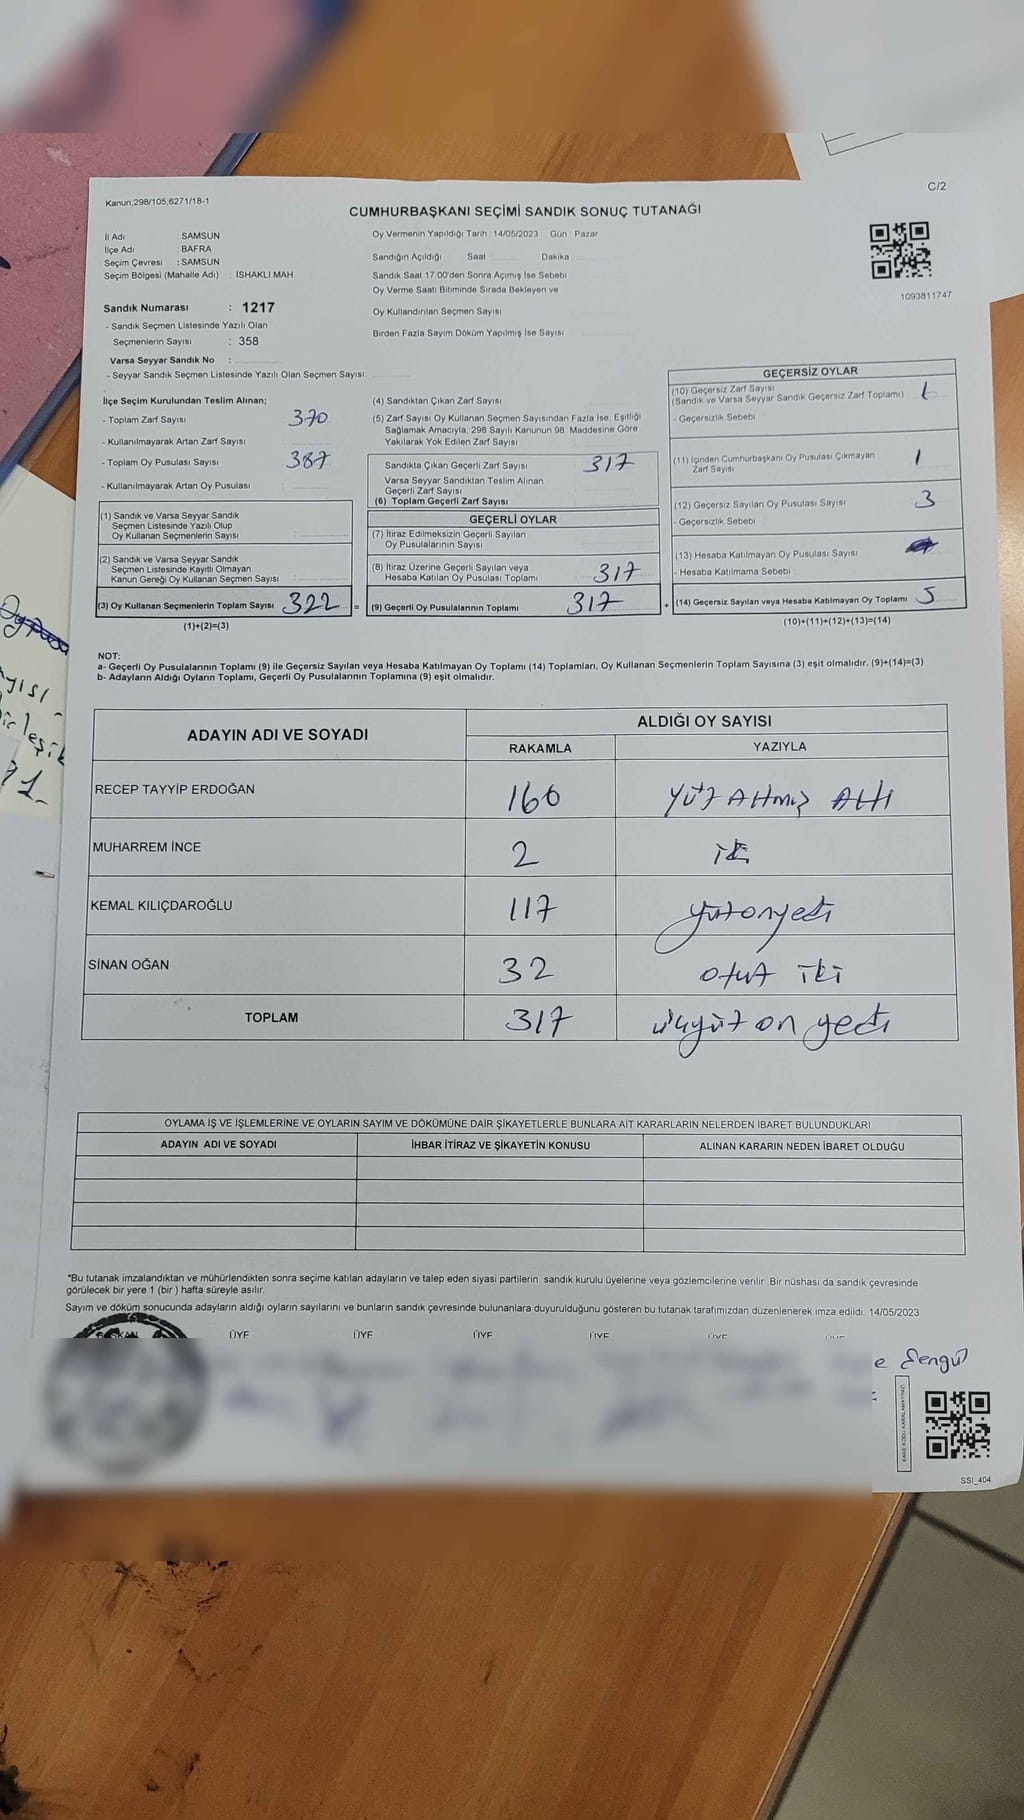 Kanun;298/105,6271/18-1
C/2
CUMHURBAŞKANI SEÇİMİ SANDIK SONUÇ TUTANAĞI
İl Adı : SAMSUN
İlçe Adı : BAFRA
Seçim Çevresi : SAMSUN
Seçim Bölgesi (Mahalle Adı) : İSHAKLI MAH
Oy Vermenin Yapıldığı Tarih : 14/05/2023 Gün : Pazar
Sandığın Açıldığı Saat Dakika
Sandık Saat 17:00'den Sonra Açımış İse Sebebi
Oy Verme Saati Bitiminde Sırada Bekleyen ve
Oy Kullandırılan Seçmen Sayısı
Birden Fazla Sayım Döküm Yapılmış İse Sayısı
1093811747
Sandık Numarası : 1217
- Sandık Seçmen Listesinde Yazılı Olan
Seçmenlerin Sayısı : 358
Varsa Seyyar Sandık No :
- Seyyar Sandık Seçmen Listesinde Yazılı Olan Seçmen Sayısı:
İlçe Seçim Kurulundan Teslim Alınan;
- Toplam Zarf Sayısı 370
- Kullanılmayarak Artan Zarf Sayısı
- Toplam Oy Pusulası Sayısı 387
- Kullanılmayarak Artan Oy Pusulası
(1) Sandık ve Varsa Seyyar Sandık
Seçmen Listesinde Yazılı Olup
Oy Kullanan Seçmenlerin Sayısı
(2) Sandık ve Varsa Seyyar Sandık
Seçmen Listesinde Kayıtlı Olmayan
Kanun Gereği Oy Kullanan Seçmen Sayısı
(3) Oy Kullanan Seçmenlerin Toplam Sayısı 322 =
(1)+(2)=(3)
(4) Sandıktan Çıkan Zarf Sayısı
(5) Zarf Sayısı Oy Kullanan Seçmen Sayısından Fazla İse, Eşitliği
Sağlamak Amacıyla, 298 Sayılı Kanunun 98. Maddesine Göre
Yakılarak Yok Edilen Zarf Sayısı
Sandıkta Çıkan Geçerli Zarf Sayısı 317
Varsa Seyyar Sandıktan Teslim Alınan
Geçerli Zarf Sayısı
(6) Toplam Geçerli Zarf Sayısı
GEÇERLİ OYLAR
(7) İtiraz Edilmeksizin Geçerli Sayılan
Oy Pusulalarının Sayısı
(8) İtiraz Üzerine Geçerli Sayılan veya
Hesaba Katılan Oy Pusulası Toplamı 317
(9) Geçerli Oy Pusulalarının Toplamı 317 +
GEÇERSİZ OYLAR
(10) Geçersiz Zarf Sayısı
(Sandık ve Varsa Seyyar Sandık Geçersiz Zarf Toplamı)
- Geçersizlik Sebebi
(11) İçinden Cumhurbaşkanı Oy Pusulası Çıkmayan 1
Zarf Sayısı
(12) Geçersiz Sayılan Oy Pusulası Sayısı 3
- Geçersizlik Sebebi
(13) Hesaba Katılmayan Oy Pusulası Sayısı
- Hesaba Katılmama Sebebi
(14) Geçersiz Sayılan veya Hesaba Katılmayan Oy Toplamı 5
(10)+(11)+(12)+(13)=(14)
NOT:
a- Geçerli Oy Pusulalarının Toplamı (9) ile Geçersiz Sayılan veya Hesaba Katılmayan Oy Toplamı (14) Toplamları, Oy Kullanan Seçmenlerin Toplam Sayısına (3) eşit olmalıdır. (9)+(14)=(3)
b- Adayların Aldığı Oyların Toplamı, Geçerli Oy Pusulalarının Toplamına (9) eşit olmalıdır.
ADAYIN ADI VE SOYADI
ALDIĞI OY SAYISI
RAKAMLA YAZIYLA
RECEP TAYYİP ERDOĞAN 166 yüz Altmış Altı
MUHARREM İNCE 2 iki
KEMAL KILIÇDAROĞLU 117 yüzonyedi
SİNAN OĞAN 32 otuz iki
TOPLAM 317 üçyüz on yedi
OYLAMA İŞ VE İŞLEMLERİNE VE OYLARIN SAYIM VE DÖKÜMÜNE DAİR ŞİKAYETLERLE BUNLARA AİT KARARLARIN NELERDEN İBARET BULUNDUKLARI
ADAYIN ADI VE SOYADI İHBAR İTİRAZ VE ŞİKAYETİN KONUSU ALINAN KARARIN NEDEN İBARET OLDUĞU
*Bu tutanak imzalandıktan ve mühürlendikten sonra seçime katılan adayların ve talep eden siyasi partilerin sandık kurulu üyelerine veya gözlemcilerine verilir. Bir nüshası da sandık çevresinde
görülecek bir yere 1 (bir) hafta süreyle asılır.
Sayım ve döküm sonucunda adayların aldığı oyların sayılarını ve bunların sandık çevresinde bulunanlara duyurulduğunu gösteren bu tutanak tarafımızdan düzenlenerek imza edildi. 14/05/2023
ÜYE ÜYE ÜYE ÜYE
e Şengül
KARE KODU KARALAMAYINIZ!
SSI_404